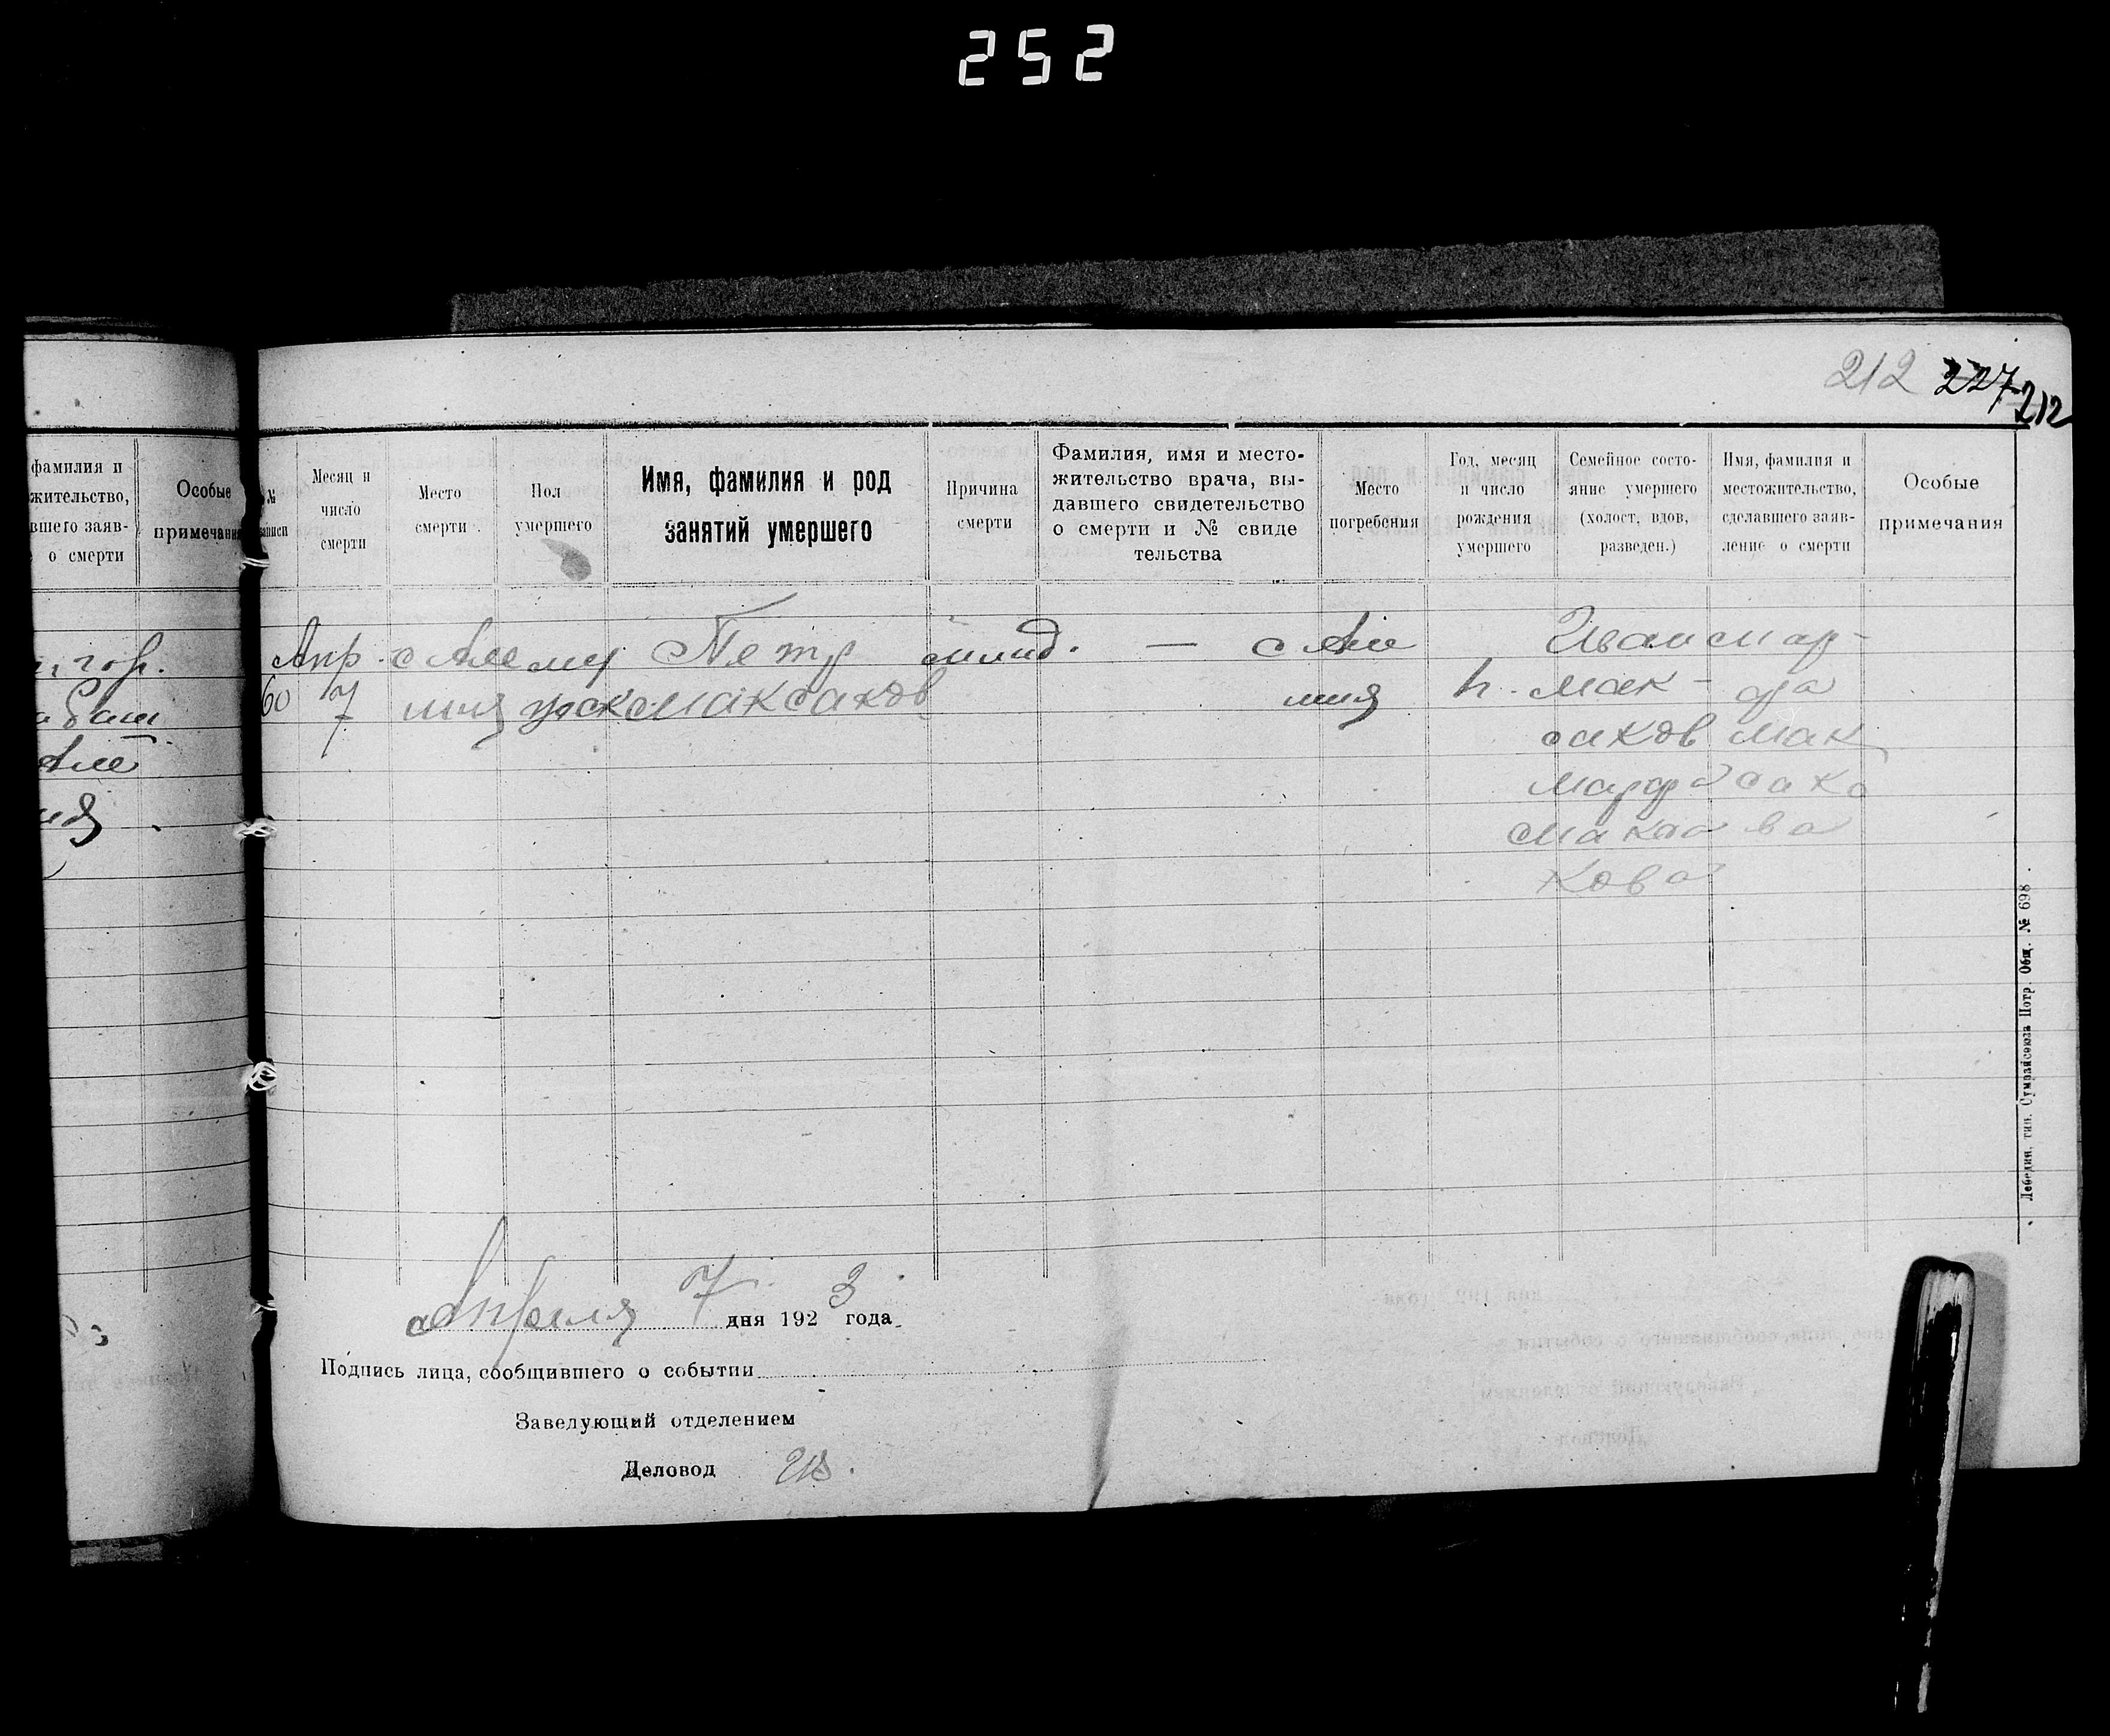 252
212 227 212
фамилия и
жительство,
вшего заяв-
о смерти
Особые
примечания
№
записи
Месяц и
число
смерти
Место
смерти
Пол
умершего
Имя, фамилия и род
занятий умершего
Причина
смерти
Фамилия, имя и место-
жительство врача, вы-
давшего свидетельство
о смерти и № свиде
тельства
Место
погребения
Год, месяц
и число
рождения
умершего
Семейное состо-
яние умершего
(холост, вдов,
разведен.)
Имя, фамилия и
местожительство,
сделавшего заяв-
ление о смерти
Особые
примечания
60
Апр.
7
муж
Петр
Максаков
—
Иван
Мак-
саков
Марфа
Макса
кова
Мар-
фа
Мак
сако
ва
Апреля 7 дня 1923 года
Подпись лица, сообщившего о событии
Заведующий отделением
Деловод
Лебедин. тип. Сумрайсоюза Потр. Общ. № 698.